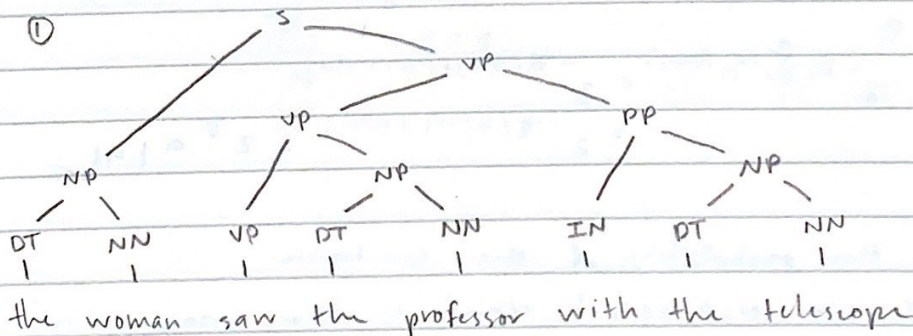 ① S
VP
VP PP
NP NP NP
DT NN VP DT NN IN DT NN
the woman saw the professor with the telescope